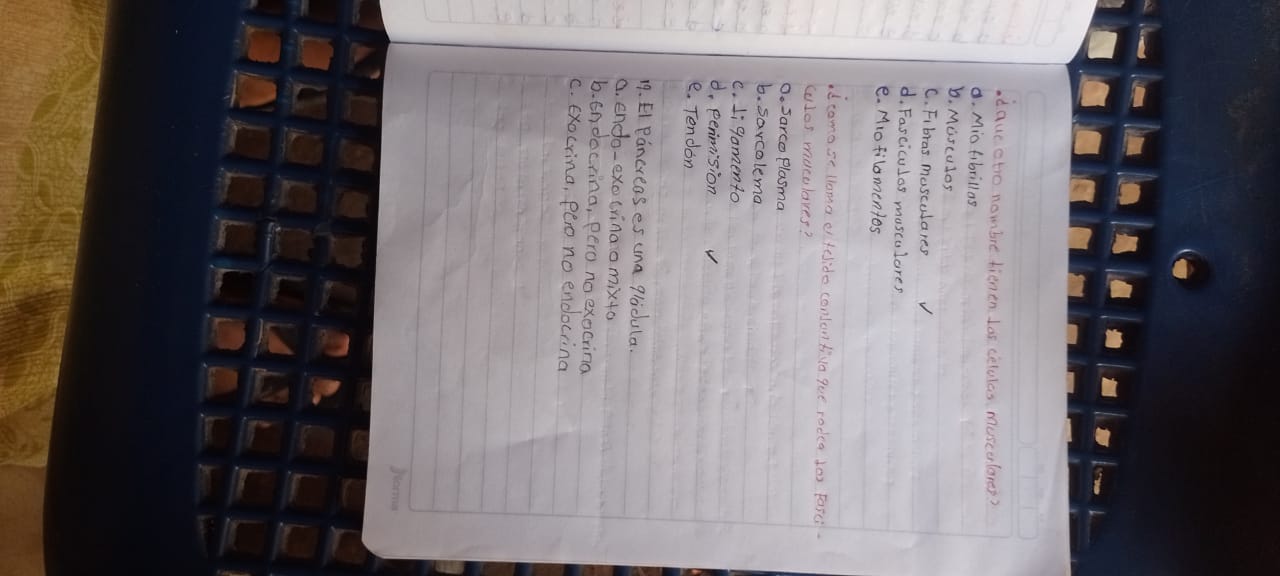 .¿que otro nombre tienen las células musculares?
a. Miofibrillas
b. Músculos
c. Fibras musculares ✓
d. Fascículos musculares
e. Miofilamentos
.¿como se llama el tejido conjuntivo que rodea los fascí-
culos musculares?
a. sarcoplasma
b. sarcolema
c. ligamento
d. perimision ✓
e. Tendón
19. El páncreas es una gládula.
a. endo-exocrina o mixta
b. endocrina, pero no exocrina
c. exocrina, pero no endocrina
Norma